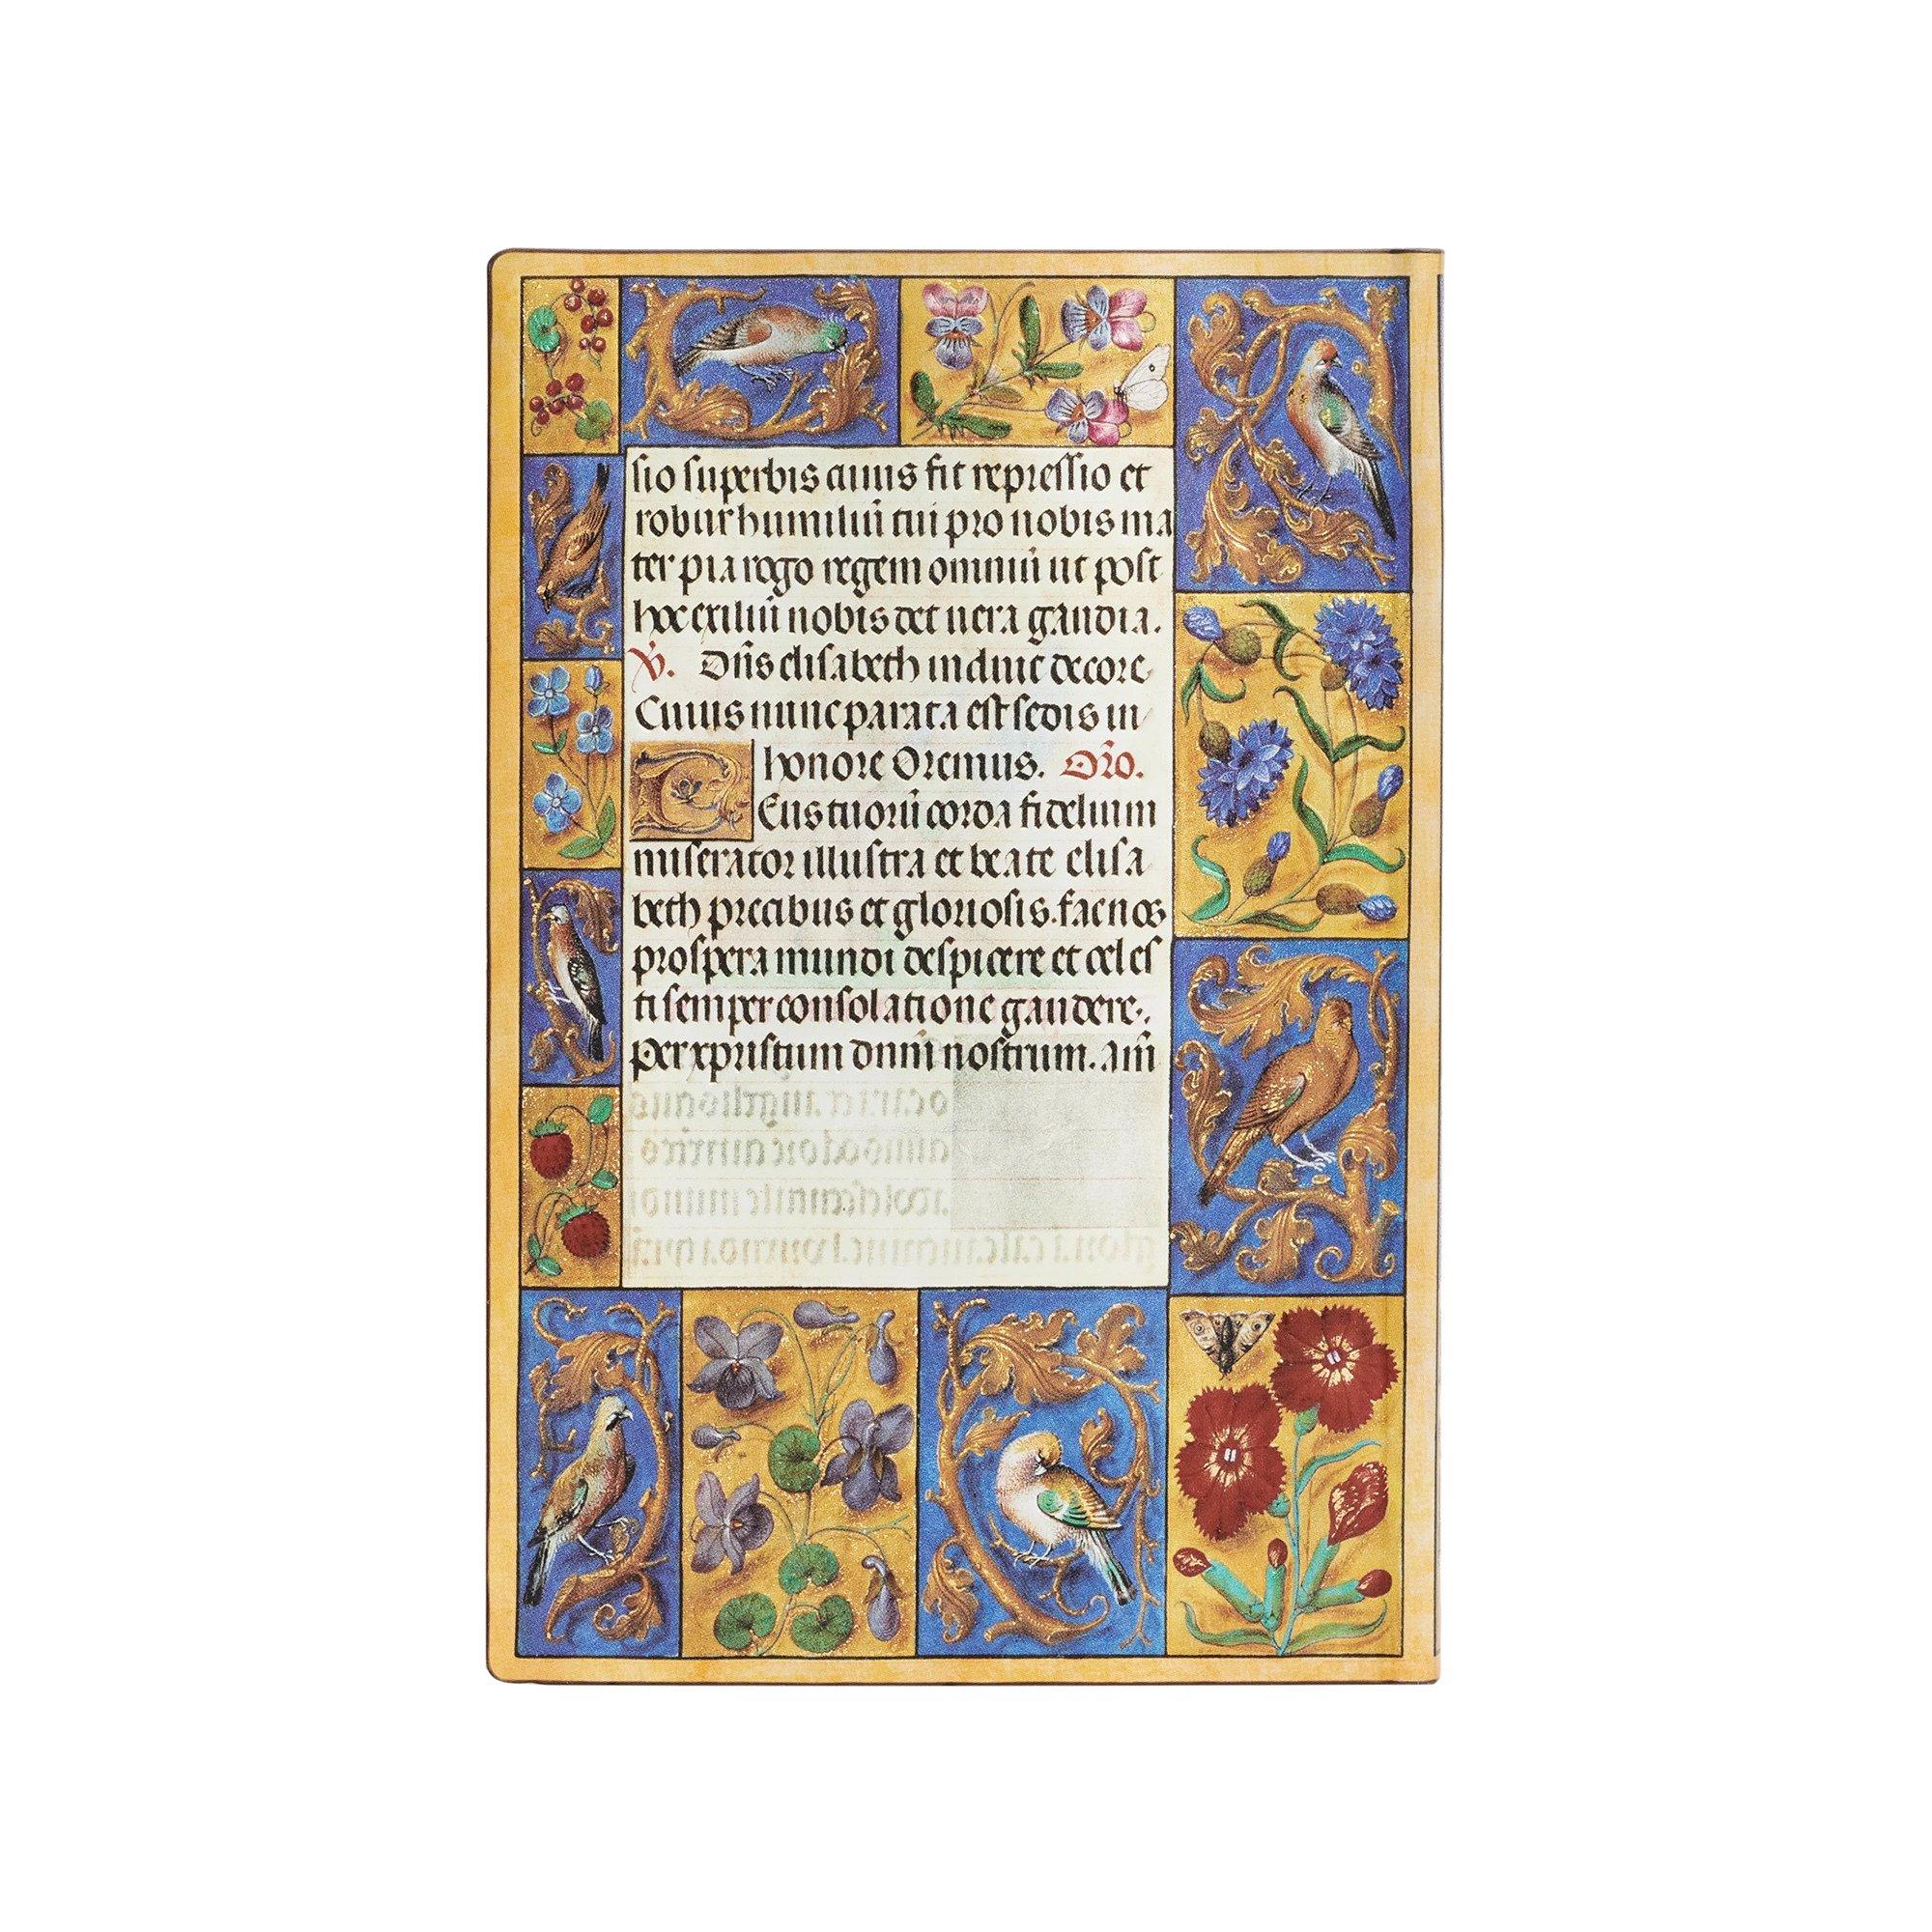 sio superbis cuius fit repressio et
robur humiliū tui pro nobis ma
ter pia rogo regem omniū ut post
hoc exiliū nobis det uera gaudia.
V̄. Dn̄s elisabeth induit decore
Cuius nunc parata est sedis in
honore Oremus. Or̄o.
DEus tuorū corda fidelium
miserator illustra et beate elisa
beth precibus et gloriosis. fac nos
prospera mundi despicere et celes
ti semper consolatione gaudere.
Per xpristum dn̄m nostrum. Am̄